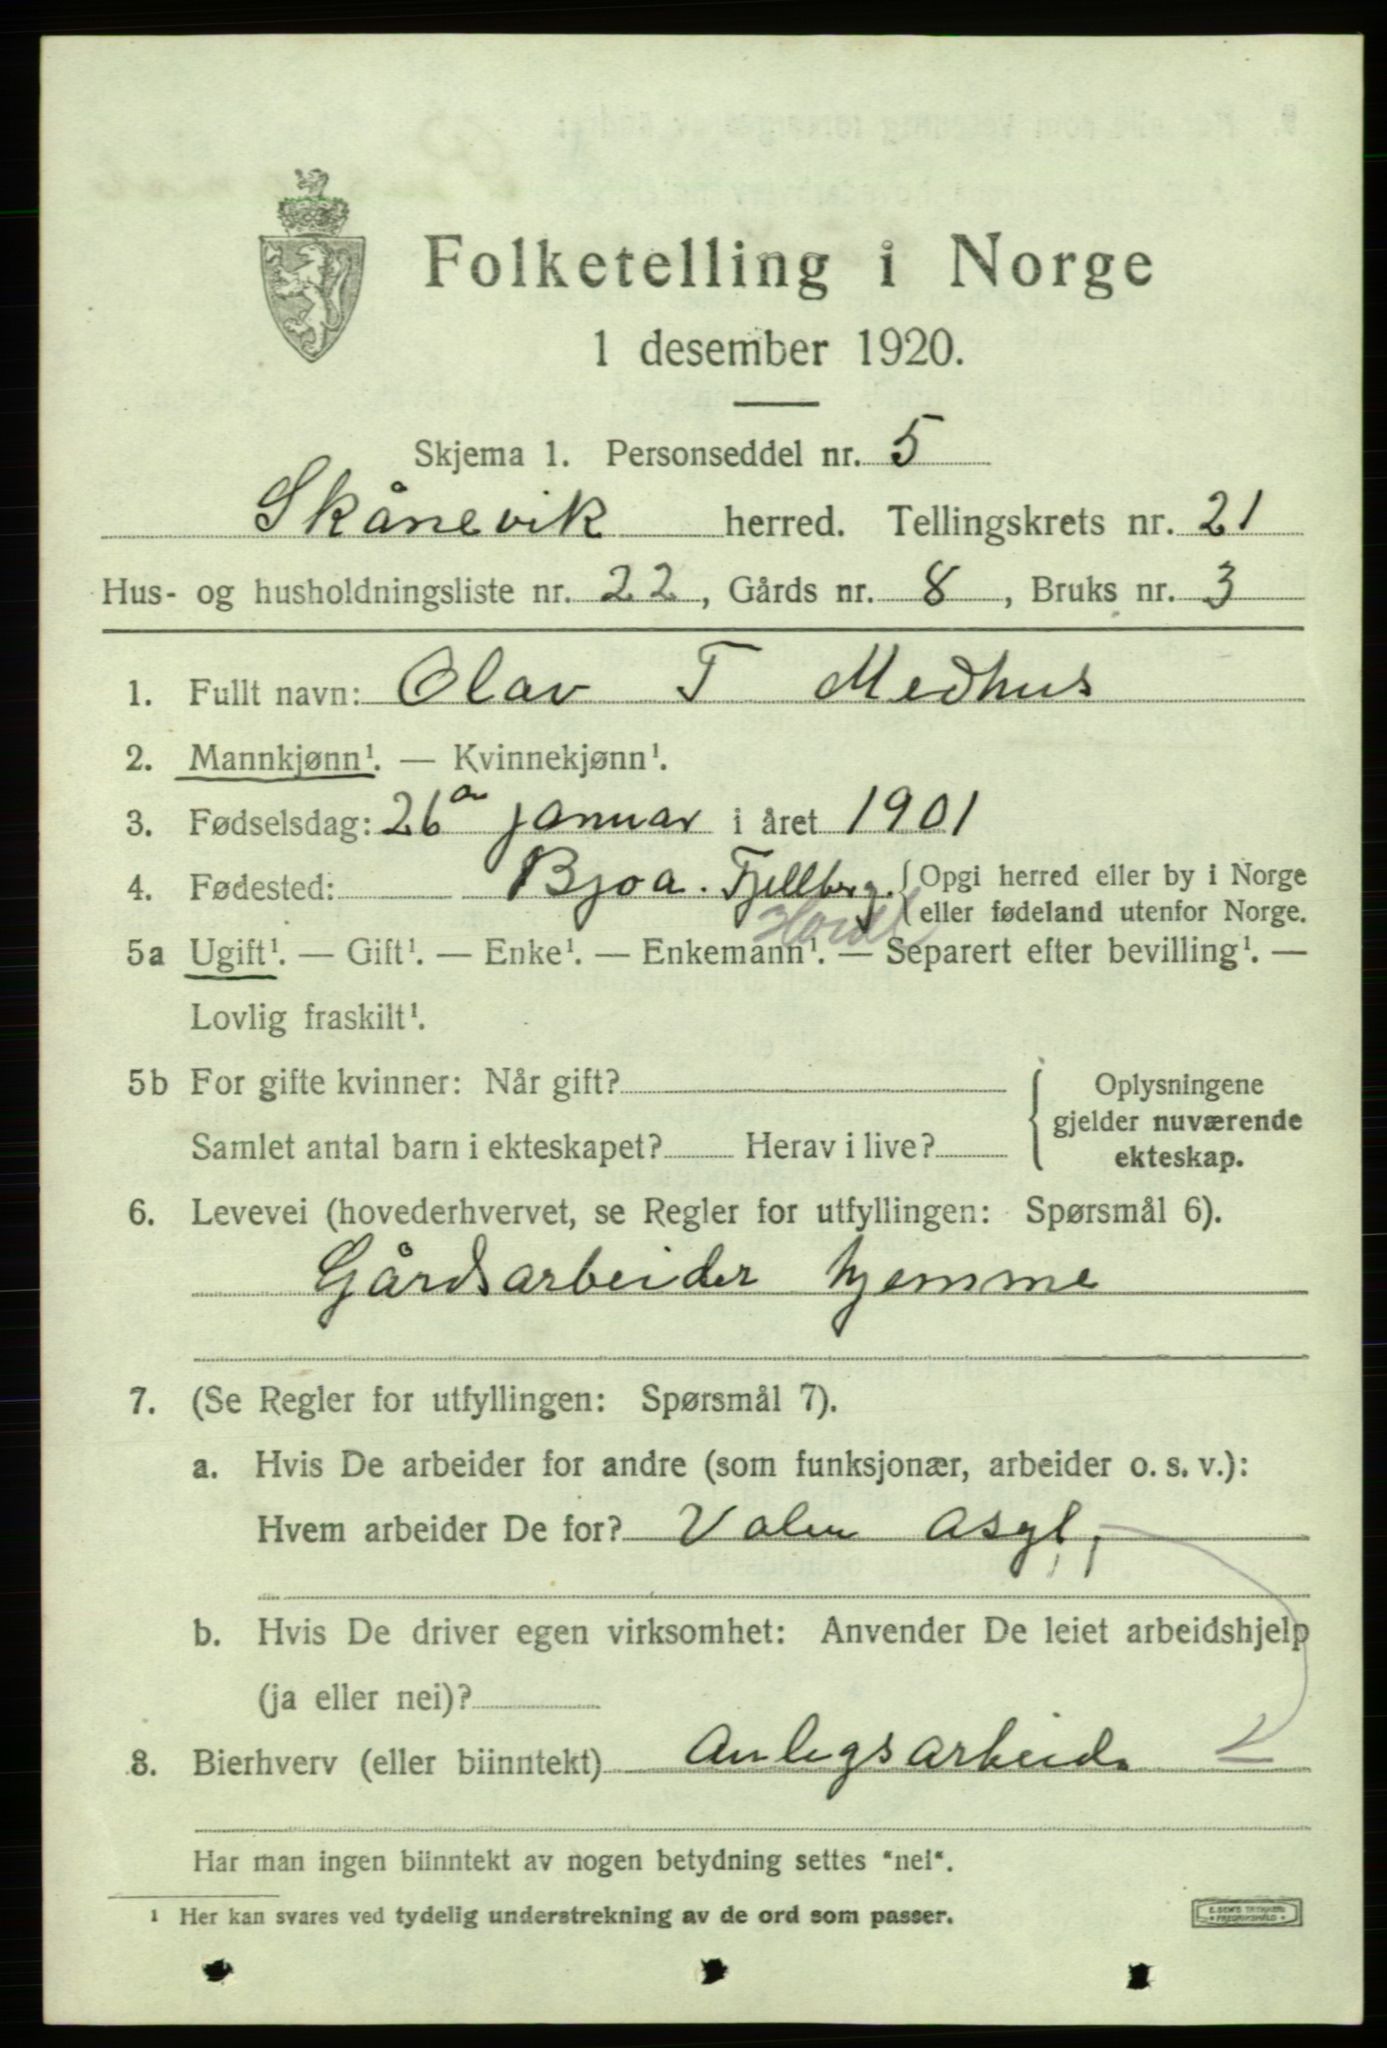 Folketelling i Norge
1 desember 1920.
Skjema 1. Personseddel nr. 5
Skånevik herred. Tellingskrets nr. 21
Hus- og husholdningsliste nr. 22, Gårds nr. 8, Bruks nr. 3
1. Fullt navn: Olav T Medhus
2. Mannkjønn¹. — Kvinnekjønn¹.
3. Fødselsdag: 26 januar i året 1901
4. Fødested: Bjoa. Fjellberg. { Opgi herred eller by i Norge
eller fødeland utenfor Norge.
Hordl
5a Ugift¹. — Gift¹. — Enke¹. — Enkemann¹. — Separert efter bevilling¹. —
Lovlig fraskilt¹.
5b For gifte kvinner: Når gift? { Oplysningene
gjelder nuværende
Samlet antal barn i ekteskapet? Herav i live?
ekteskap.
6. Levevei (hovederhvervet, se Regler for utfyllingen: Spørsmål 6).
Gårdsarbeider hjemme
7. (Se Regler for utfyllingen: Spørsmål 7).
a. Hvis De arbeider for andre (som funksjonær, arbeider o. s. v.):
Hvem arbeider De for? Valen asyl,
b. Hvis De driver egen virksomhet: Anvender De leiet arbeidshjelp
(ja eller nei)?
8. Bierhverv (eller biinntekt) Anlegsarbeide
Har man ingen biinntekt av nogen betydning settes "nei".
¹ Her kan svares ved tydelig understrekning av de ord som passer.